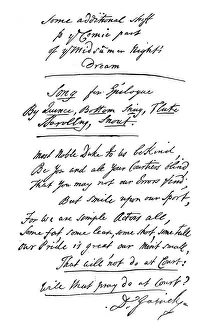 Some additional stuff
to ye Comic part
of ye Midsumer Night's
Dream
Song for Epilogue
By Quince, Bottom Snug, Flute
Starveling, Snout.
Most Noble Duke to us be kind
Be you and all your Courtiers blind
That you may not our Errors find,
But smile upon our Sport,
For we are simple Actors all,
Some fat some lean, some short some tall
Our Pride is great our merit small,
That will not do at Court?
Will that pray do at Court?
D: Garrick